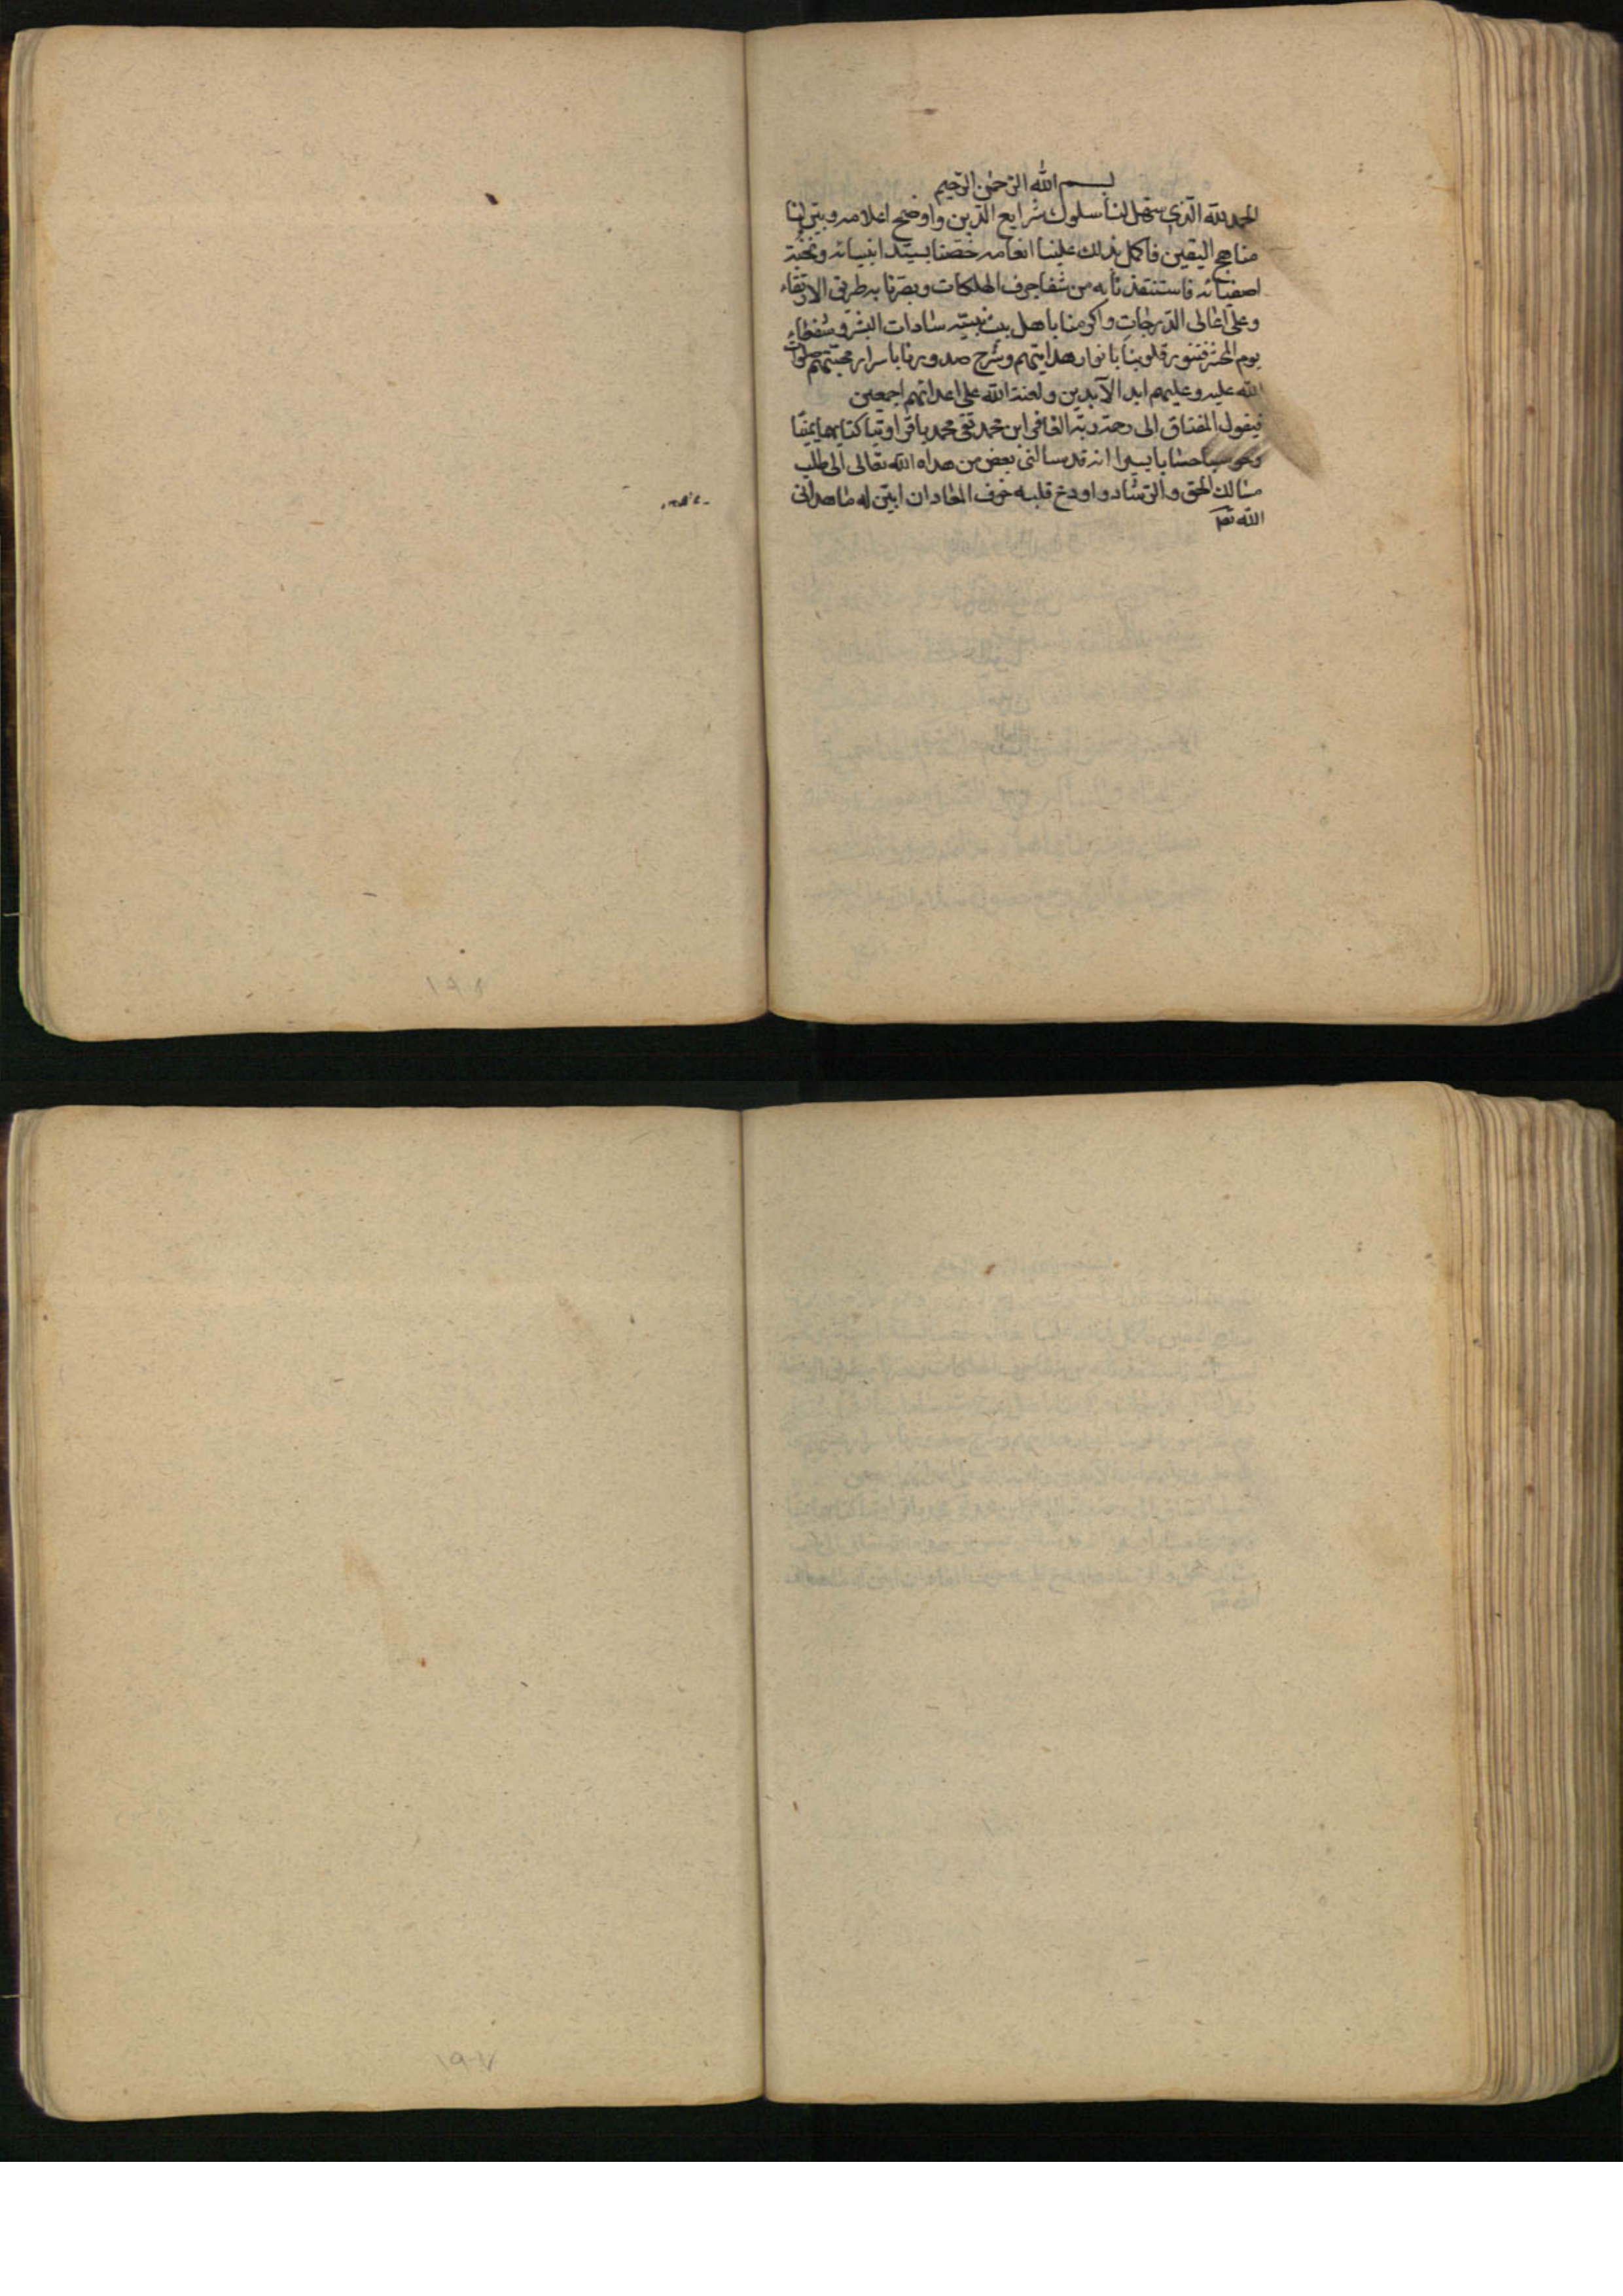 بسم الله الرّحمن الرّحیم
الحمد لله الّذی سهّل لنا سلوك شرایع الدّین و اوضح اعلامه و بیّن لنا
مناهج الیقین فاکمل بذلك علینا انعامه خصّنا بسیّد انبیائه و نخبة
اصفیائه فاستنقذنا به من شفا جرف الهلکات و بصّرنا به طریق الارتقاء
و علی اعالی الدّرجات و اکرمنا باهل بیت نبیّه سادات البشر و شفعاء
یوم المحشر فنوّر قلوبنا بانوار هدایتهم و شرح صدورنا باسرار محبّتهم صلوات
الله علیه و علیهم ابد الآبدین و لعنة الله علی اعدائهم اجمعین
فیقول المفتاق الی رحمة ربّه الغافر ابن محمد تقی محمد باقر اوتیا کتابهما یمینا
و حوسبا حسابا یسیرا انه قد سالنی بعض من هداه الله تعالی الی طلب
مسالك الحق و الرّشاد و اودع قلبه خوف المعاد ان ابیّن له ما هدانی
الله تعالی
۱۹۸
۱۹۷